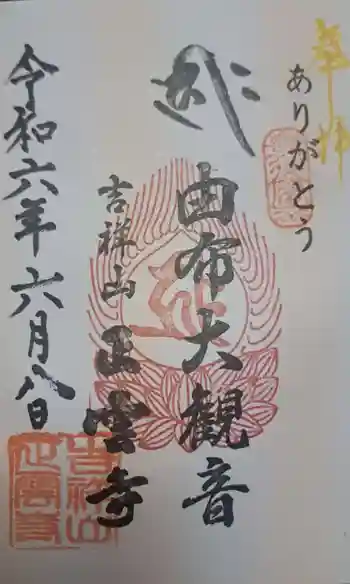 奉拝
ありがとう
由布大觀音
吉祥山 正雲寺
令和六年六月八日
吉祥山
正雲寺